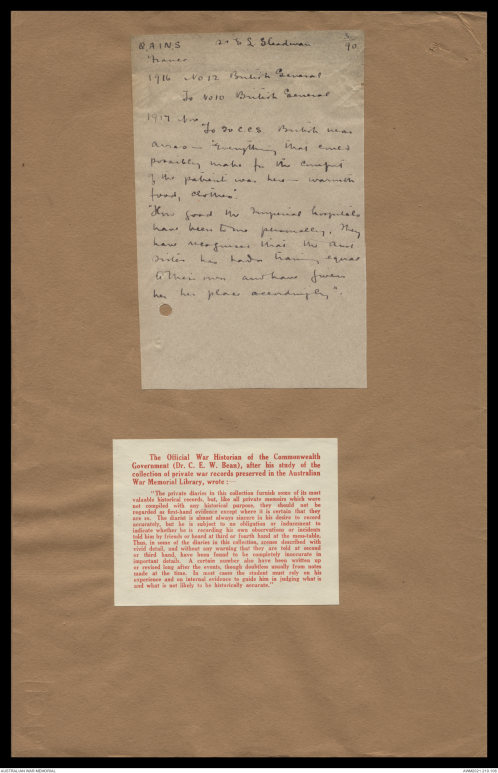 Q.A.I.N.S 2. E S Steadman 90
France
1916 No 12 British General
To No 10 British General
1917 Nov
To 30 C.C.S. British near
Arras — "Everything that could
possibly make for the comfort
of the patient was here — warmth
food, clothes".
"How good the Imperial hospitals
have been to me personally. They
have recognised that the Aust
sister has had a training equal
to their own and have given
her her place accordingly".
The Official War Historian of the Commonwealth
Government (Dr. C. E. W. Bean), after his study of the
collection of private war records preserved in the Australian
War Memorial Library, wrote :—
"The private diaries in this collection furnish some of its most
valuable historical records, but, like all private memoirs which were
not compiled with any historical purpose, they should not be
regarded as first-hand evidence except where it is certain that they
are so. The diarist is almost always sincere in his desire to record
accurately, but he is subject to no obligation or inducement to
indicate whether he is recording his own observations or incidents
told him by friends or heard at third or fourth hand at the mess-table.
Thus, in some of the diaries in this collection, scenes described with
vivid detail, and without any warning that they are told at second
or third hand, have been found to be completely inaccurate in
important details. A certain number also have been written up
or revised long after the events, though doubtless usually from notes
made at the time. In most cases the student must rely on his
experience and on internal evidence to guide him in judging what is
and what is not likely to be historically accurate."
AUSTRALIAN WAR MEMORIAL